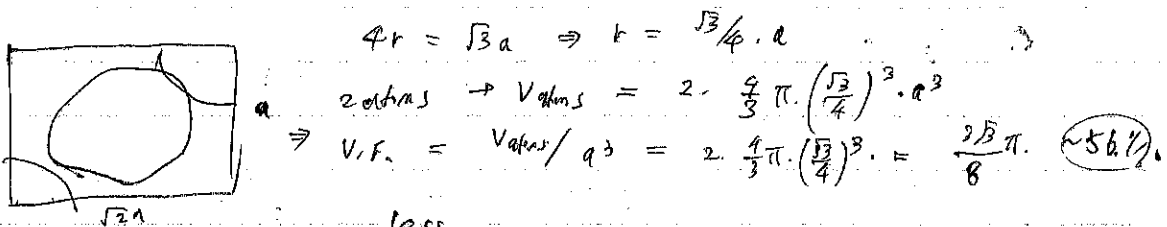 4r = √3 a ⇒ r = √3/4 . a
2 atoms → V atoms = 2 . 4/3 π . (√3/4)³ . a³
a ⇒ V.F. = V atoms / a³ = 2 . 4/3 π . (√3/4)³ . = √3/8 π . ~56% .
√2 a
less